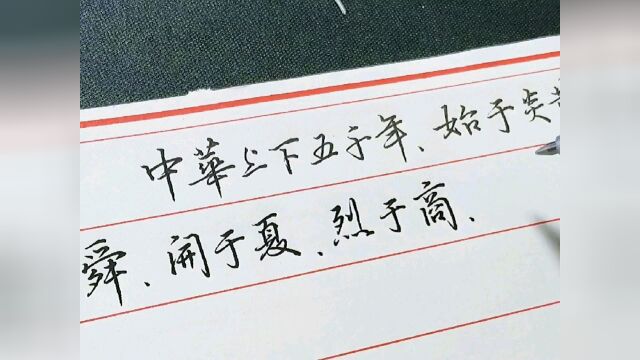 中華上下五千年、始于炎
舜、開于夏、烈于商、